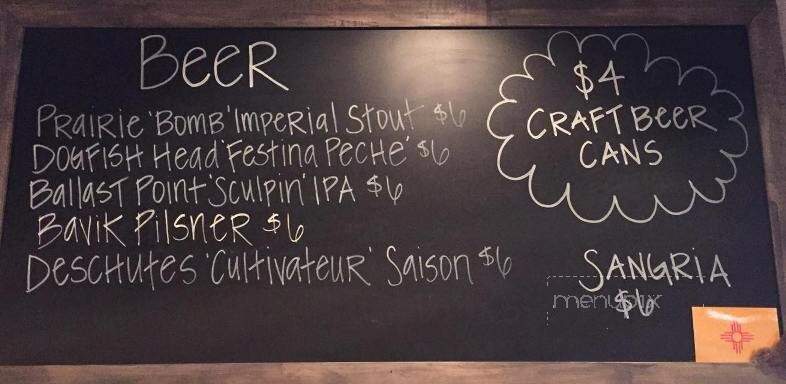 BEER
PRAIRIE 'BOMB' IMPERIAL STOUT $6
DOGFISH HEAD 'FESTINA PECHE' $6
BALLAST POINT 'SCULPIN' IPA $6
BAVIK PILSNER $6
DESCHUTES 'CULTIVATEUR' SAISON $6
$4
CRAFT BEER
CANS
SANGRIA
$6
menupix